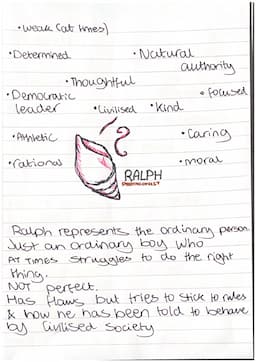 •weak (at times)
•Determined
•Natural authority
•Thoughtful
•Democratic leader
•focused
•Civilised
•Kind
•Athletic
•Caring
•rational
RALPH
•moral
Ralph represents the ordinary person.
Just an ordinary boy who
AT TIMES struggles to do the right
thing.
NOT perfect.
Has flaws but tries to stick to rules
& how he has been told to behave
by civilised society